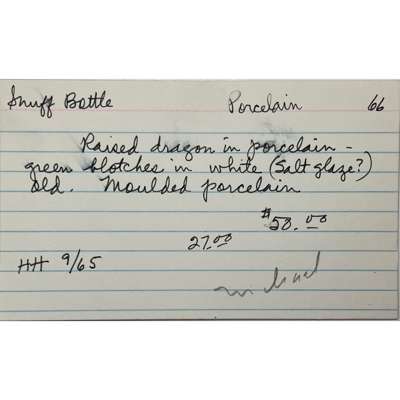 Snuff Bottle Porcelain 66
Raised dragon in porcelain -
green blotches in white (Salt glaze?)
old. Moulded porcelain
$50.00
27.00
HH 9/65
Michael